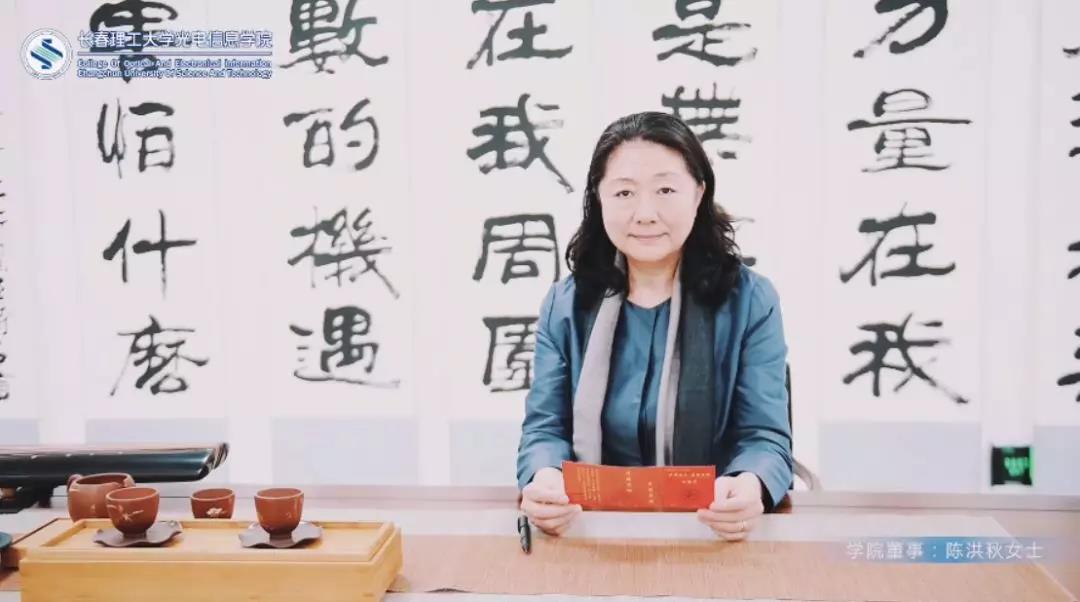 长春理工大学光电信息学院
College Of Optical And Electronical Information
Changchun University Of Science And Technology
力量在我
是無
在我周圍
數的機遇
怕什麼
学院董事：陈洪秋女士